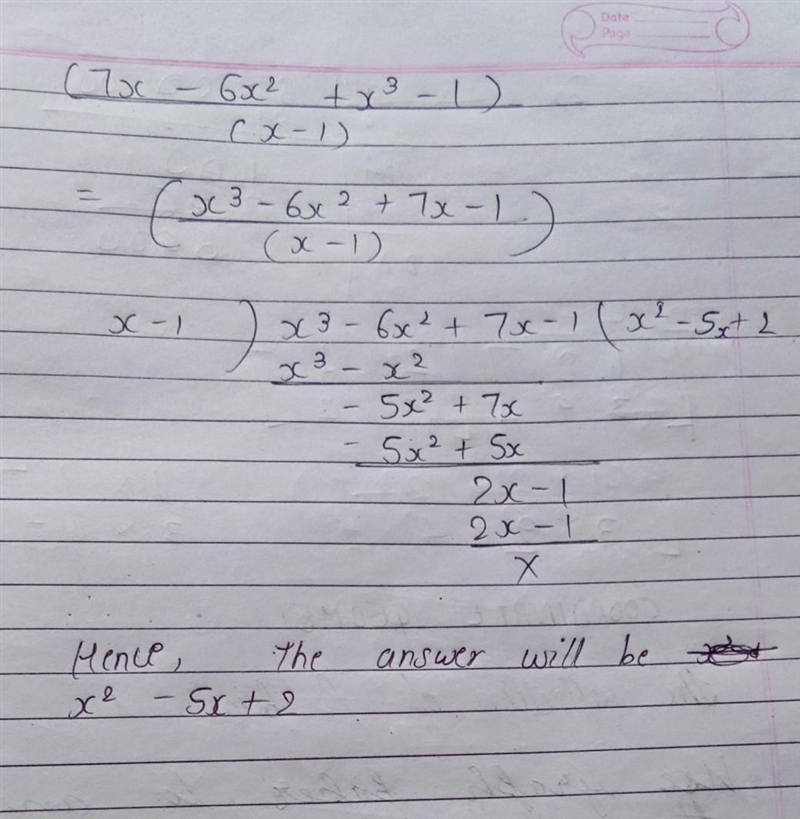 Date
Page
(7x - 6x² + x³ - 1)
(x - 1)
= (x³ - 6x² + 7x - 1)
(x - 1)
x - 1 ) x³ - 6x² + 7x - 1 ( x² - 5x + 2
x³ - x²
- 5x² + 7x
- 5x² + 5x
2x - 1
2x - 1
x
Hence, The answer will be
x² - 5x + 2